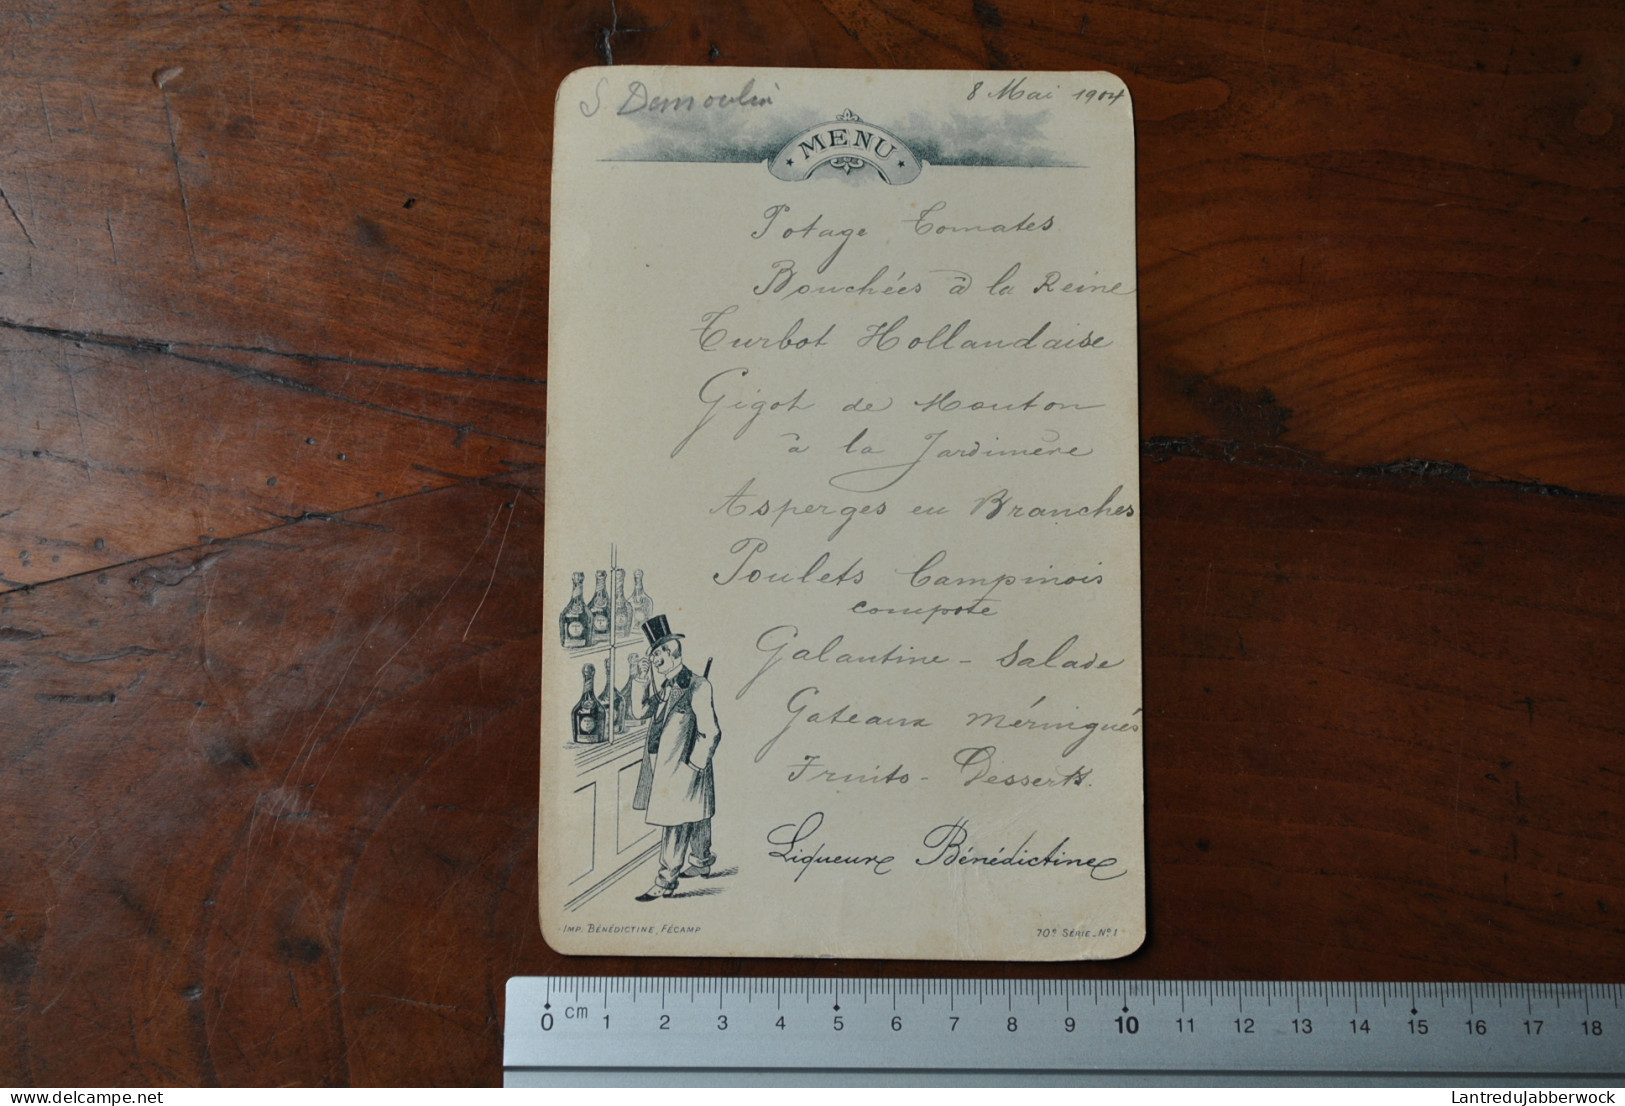 S Demoulin
8 Mai 1904
MENU
Potage Tomates
Bouchées à la Reine
Turbot Hollandaise
Gigot de Mouton
à la Jardinière
Asperges en Branches
Poulets Campinois
compote
Galantine - Salade
Gateaux Méringués
Fruits - Desserts.
Liqueur Bénédictine
IMP. BÉNÉDICTINE, FÉCAMP
70e SÉRIE_No 1
0 cm 1 2 3 4 5 6 7 8 9 10 11 12 13 14 15 16 17 18
delcampe.net
LantreduJabberwock